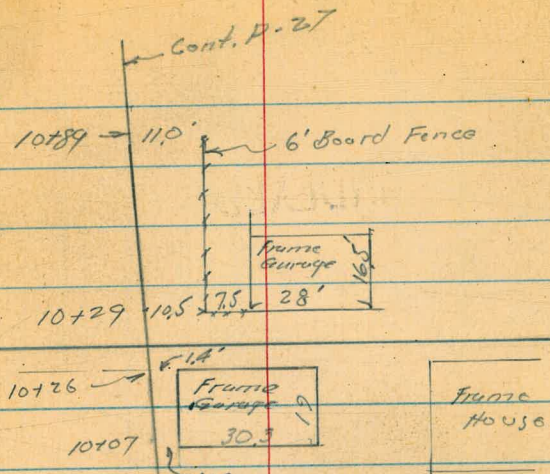 Cont. P-27
10+89 11.0' 6' Board Fence
Frame
Garage
16.5'
28'
10+29 10.5 7.5
1.4'
10+26
Frame
Garage
19
30.3
Frame
House
10+07